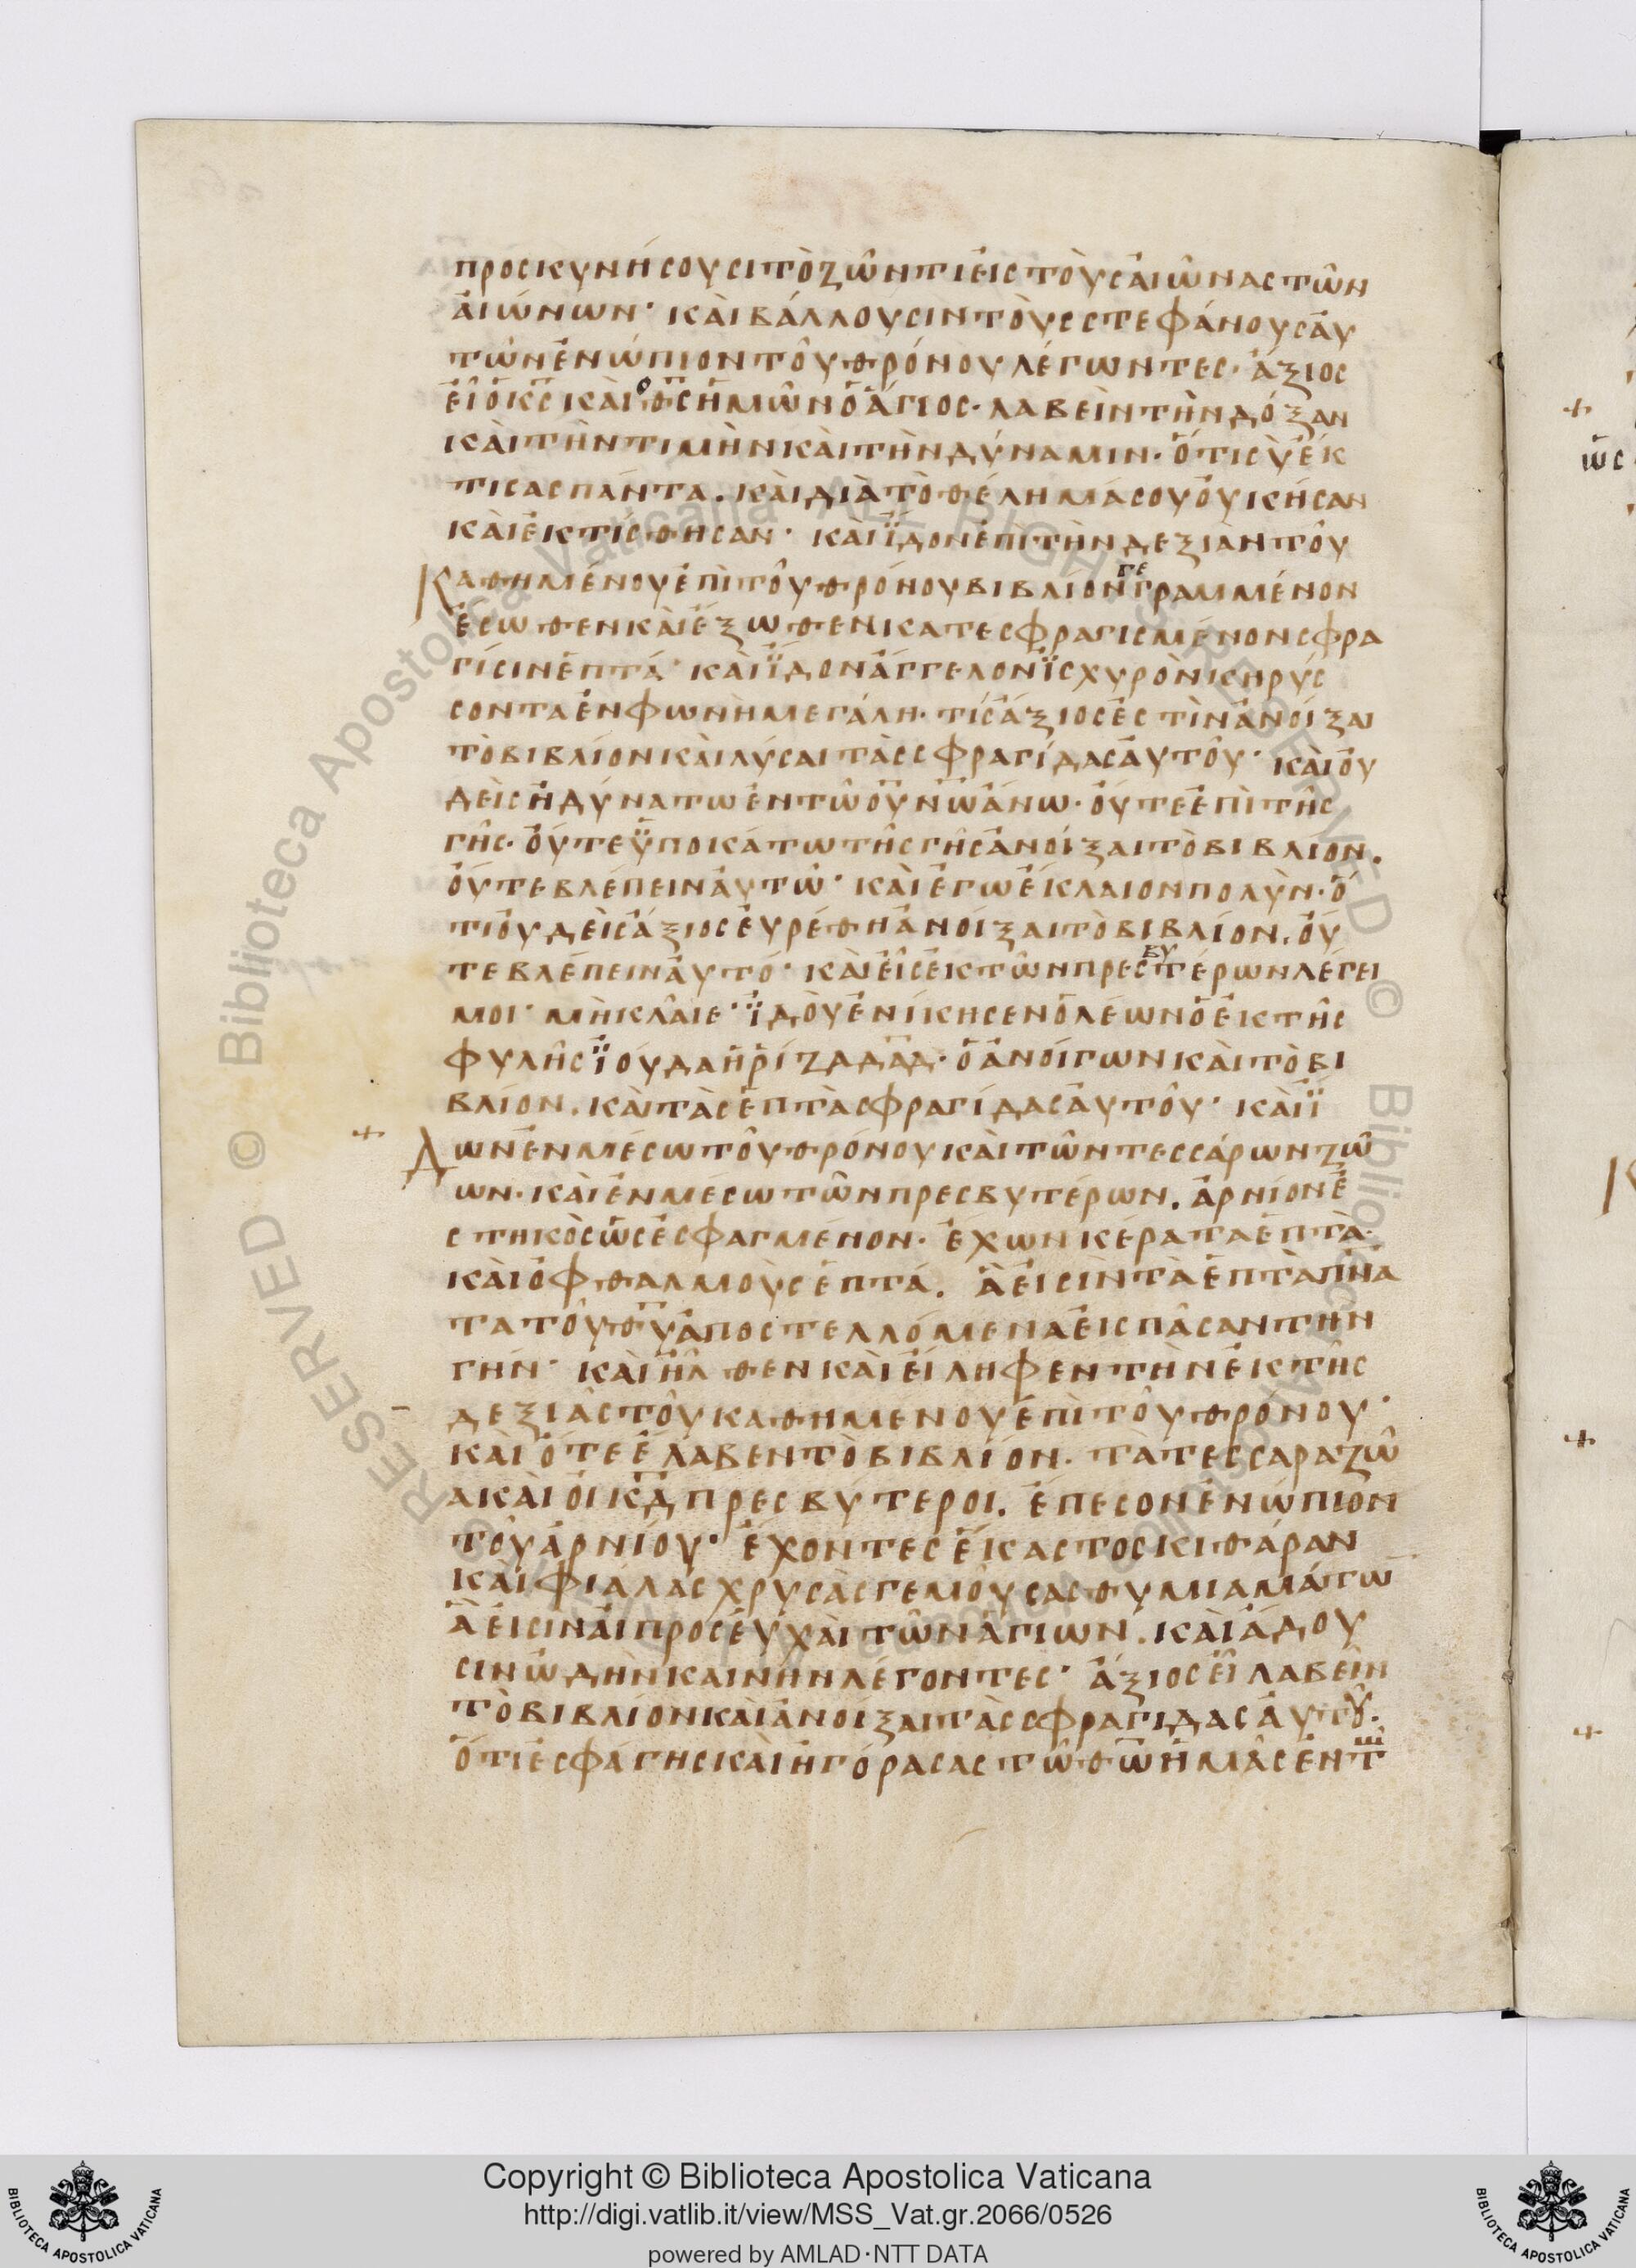 προσκυνήσουσι τὸ ζῶντι εἰς τοὺς αἰῶνας τῶν
αἰώνων· καὶ βάλλουσιν τοὺς στεφάνους αὐ
τῶν ἐνώπιον τοῦ θρόνου λέγωντες· ἄξιος
εἶ ὁ κ̅ς̅ καὶ ὁ θ̅ς̅ ἡμῶν ὁ ἅγιος· λαβεῖν τὴν δόξαν
καὶ τὴν τιμὴν καὶ τὴν δύναμιν· ὅτι σὺ ἔκ
τισας πάντα. καὶ διὰ τὸ θέλημά σου οὐκ ἦσαν
καὶ ἐκτίσθησαν· καὶ ἴ̈δον ἐπὶ τὴν δεξιὰν τοῦ
Καθημένου ἐπὶ τοῦ θρόνου βιβλίον γεγραμμένον
ἔσωθεν καὶ ἔξωθεν κατεσφραγισμένον σφρα
γίσιν ἑπτά· καὶ ἴ̈δον ἄγγελον ϊσχυρὸν κηρύς
σοντα ἐν φωνὴ μεγάλη· τίς ἄξιος ἐστὶν ἀνοίξαι
τὸ βιβλίον καὶ λύσαι τὰς σφραγίδας αὐτοῦ· καὶ οὐ
δεὶς ἠδύνατω ἐν τῶ ο̅υ̅ν̅ω̅ ἄνω· οὔτε ἐπὶ τῆς
γῆς· οὔτε ϋποκάτω τῆς γῆς ἀνοίξαι τὸ βιβλίον.
οὔτε βλέπειν αὐτῶ· καὶ ἐγω ἔκλαιον πολὺν· ὅ
τι οὐδεὶς ἄξιος εὑρέθη ἀνοίξαι τὸ βιβλίον. οὔ
τε βλέπειν αὐτό· καὶ εἷς ἐκ τῶν πρεσβυτέρων λέγει
μοι· μὴ κλαῖε· ϊδοὺ ἐνίκησεν ὁ λέων ὁ ἐκ τῆς
φυλῆς ϊούδα ἡ ρίζα δ̅α̅δ̅· ὁ ἀνοίγων καὶ τὸ βι
βλίον. καὶ τὰς ἑπτὰ σφραγίδας αὐτοῦ· καὶ ἴ̈
Δων ἐν μέσω τοῦ θρόνου καὶ τῶν τεσσάρων ζώ
ων· καὶ ἐν μέσω τῶν πρεσβυτέρων. ἀρνίον ἑ
στηκὸς ὡς ἐσφαγμένον· ἔχων κέρατα ἑπτὰ·
καὶ ὀφθαλμοὺς ἑπτά. ἅ εἰσιν τὰ ἑπτὰ π̅ν̅α̅
τα τοῦ θ̅υ̅ ἀποστελλόμενα εἰς πᾶσαν τὴν
γῆν· καὶ ἦλθεν καὶ εἴληφεν τὴν ἐκ τῆς
δεξιᾶς τοῦ καθημενου ἐπὶ τοῦ θρόνου·
καὶ ὅτε ἔλαβεν τὸ βιβλίον· τὰ τεσσαρα ζῶ
α καὶ οἱ κ̅δ̅ πρεσβύτεροι. ἔπεσον ἐνώπιον
τοῦ ἀρνίου· ἔχοντες ἕκαστος κιθάραν
καὶ φιαλας χρυσὰς γεμούσας θυμιαμάτω̅
ἅ εἰσιν αἱ προσευχαὶ τῶν ἁγίων. καὶ ἄδου
σιν ὠδὴν καινὴν λέγοντες· ἄξιος εἶ λαβεῖν
τὸ βιβλίον καὶ ἀνοίξαι τὰς σφραγίδας αὐτοῦ.
ὅτι ἐσφάγης καὶ ἠγόρασας τῶ θ̅ω̅ ἡμᾶς ἐν τ
Copyright © Biblioteca Apostolica Vaticana
http://digi.vatlib.it/view/MSS_Vat.gr.2066/0526
powered by AMLAD·NTT DATA
BIBLIOTECA APOSTOLICA VATICANA
BIBLIOTECA APOSTOLICA VATICANA